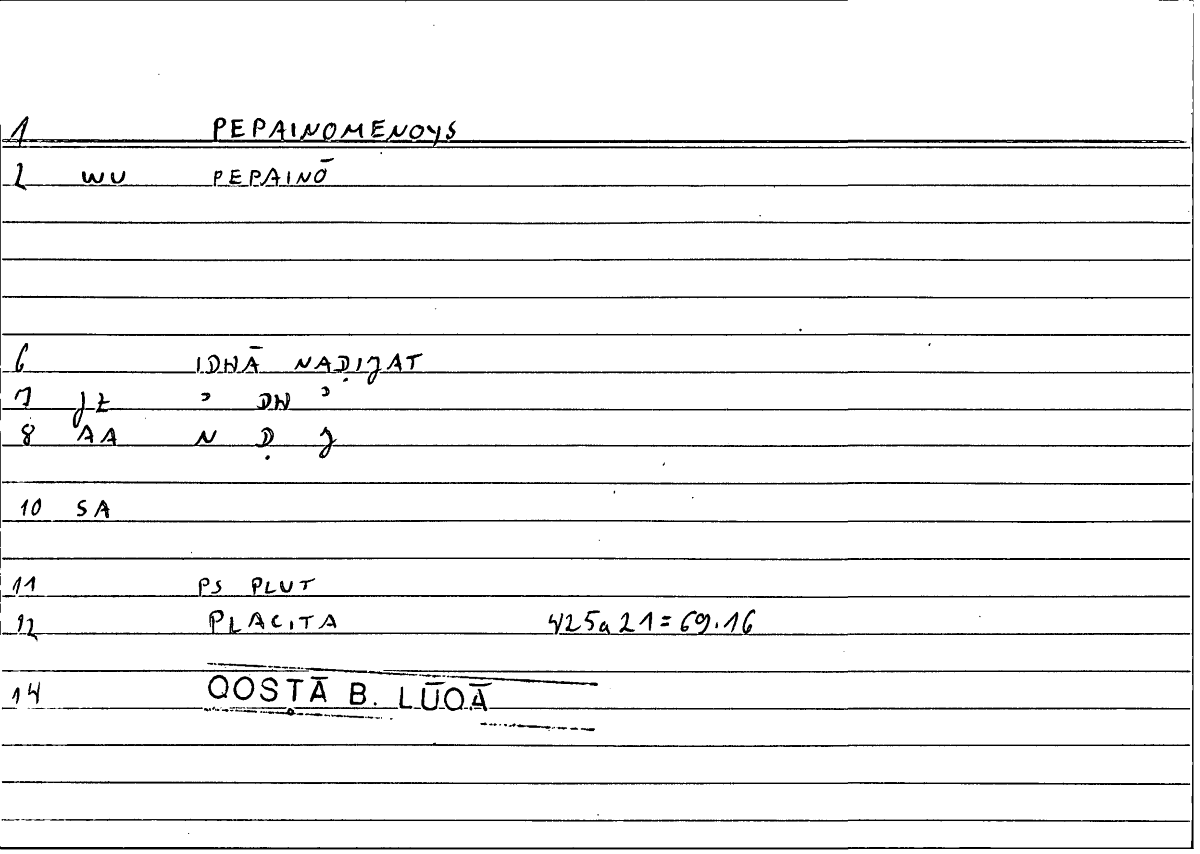 1 PEPAINOMENOYS
2 WU PEPAINŌ
6 IDHĀ NAḌIJAT
7 JŁ ” DH ”
8 AA N Ḍ J
10 SA
11 PS PLUT
12 PLACITA 425a21=69.16
14 QOSṬĀ B. LŪQĀ